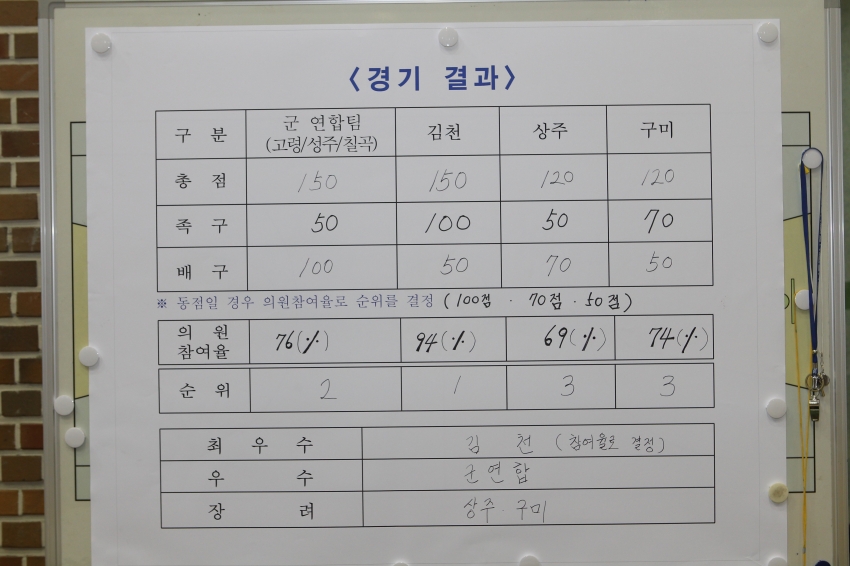 <경기 결과>
구 분 군 연합팀 김천 상주 구미
(고령/성주/칠곡)
총 점 150 150 120 120
족 구 50 100 50 70
배 구 100 50 70 50
※ 동점일 경우 의원참여율로 순위를 결정 (100점 · 70점 · 50점)
의 원
참여율 76(%) 94(%) 69(%) 74(%)
순 위 2 1 3 3
최 우 수 김 천 (참여율로 결정)
우 수 군연합
장 려 상주·구미